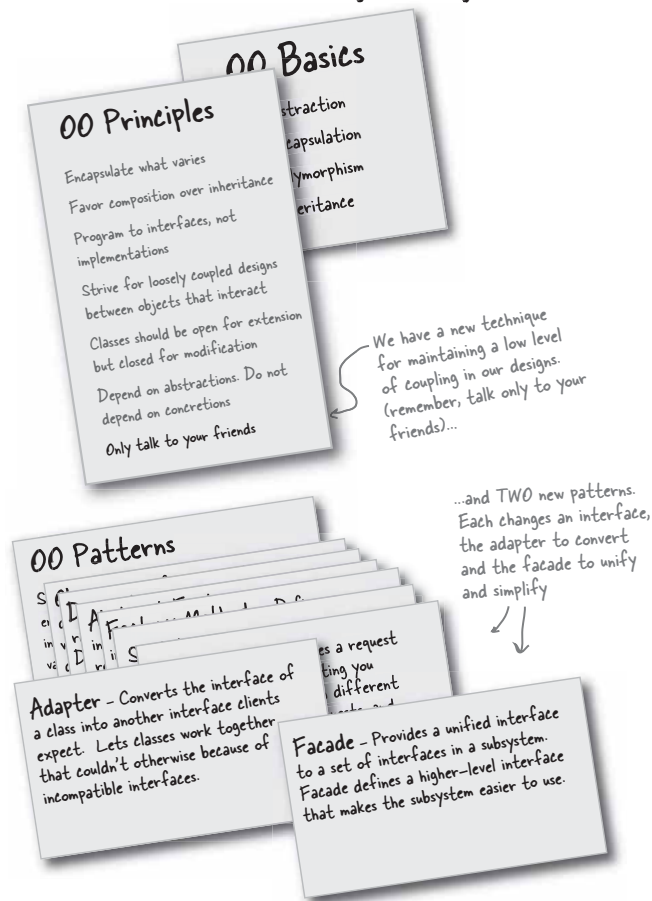 OO Basics
OO Principles
Encapsulate what varies
Favor composition over inheritance
Program to interfaces, not
implementations
Strive for loosely coupled designs
between objects that interact
Classes should be open for extension
but closed for modification
Depend on abstractions. Do not
depend on concretions
Only talk to your friends
We have a new technique
for maintaining a low level
of coupling in our designs.
(remember, talk only to your
friends)...
...and TWO new patterns.
Each changes an interface,
the adapter to convert
and the facade to unify
and simplify
OO Patterns
a request
you
different
Adapter – Converts the interface of
a class into another interface clients
expect. Lets classes work together
that couldn't otherwise because of
incompatible interfaces.
Facade – Provides a unified interface
to a set of interfaces in a subsystem.
Facade defines a higher-level interface
that makes the subsystem easier to use.